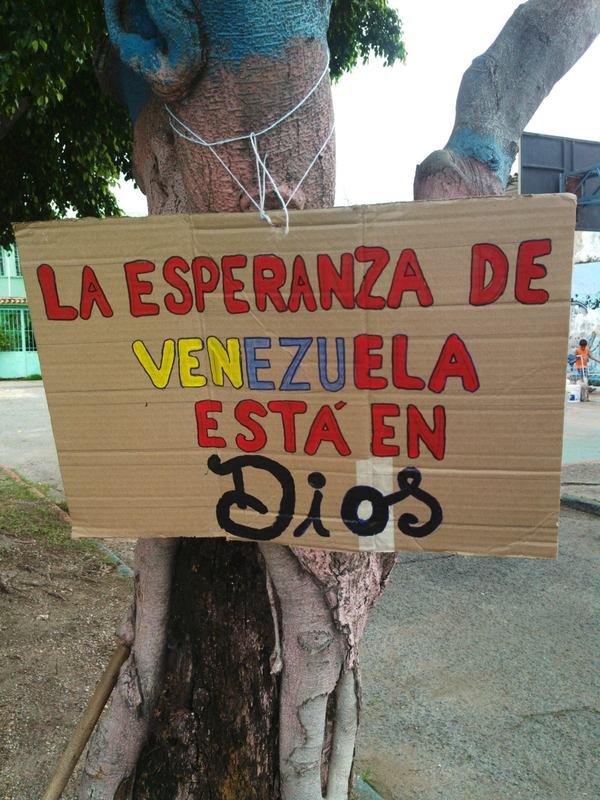 LA ESPERANZA DE
VENEZUELA
ESTÁ EN
Dios